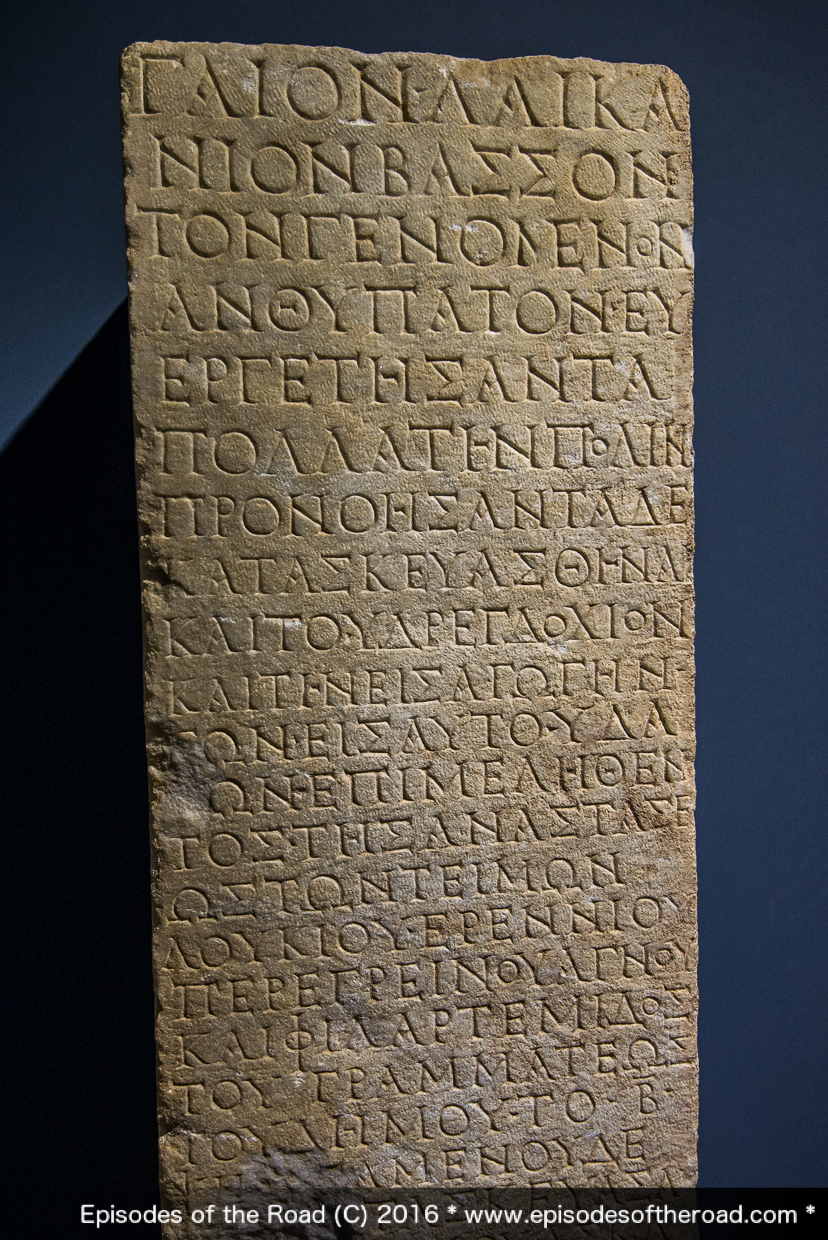 ΓΑΙΟΝ·ΛΑΙΚΑ
ΝΙΟΝΒΑΣΣΟΝ
ΤΟΝΓΕΝΟΜΕΝΟΝ
ΑΝΘΥΠΑΤΟΝ·ΕΥ
ΕΡΓΕΤΗΣΑΝΤΑ
ΠΟΛΛΑΤΗΝΠΟΛΙΝ
ΠΡΟΝΟΗΣΑΝΤΑΔΕ
ΚΑΤΑΣΚΕΥΑΣΘΗΝΑΙ
ΚΑΙΤΟΥΔΡΕΓΔΟΧΙΟΝ
ΚΑΙΤΗΝΕΙΣΑΓΩΓΗΝ
ΤΩΝ·ΕΙΣΑΥΤΟ·ΥΔΑ
ΩΝ·ΕΠΙΜΕΛΗΘΕΝ
ΤΟΣ·ΤΗΣΑΝΑΣΤΑΣΕ
ΩΣΤΩΝΤΕΙΜΩΝ
ΛΟΥΚΙΟΥ·ΕΡΕΝΝΙΟΥ
ΠΕΡΕΓΡΕΙΝΟΥΑΓΝΟΥ
ΚΑΙΦΙΛΑΡΤΕΜΙΔΟΣ
ΤΟΥ ΓΡΑΜΜΑΤΕΩΣ
ΤΟΥΔΗΜΟΥ·ΤΟ·Β·
ΑΜΕΝΟΥΔΕ
Episodes of the Road (C) 2016 * www.episodesoftheroad.com *